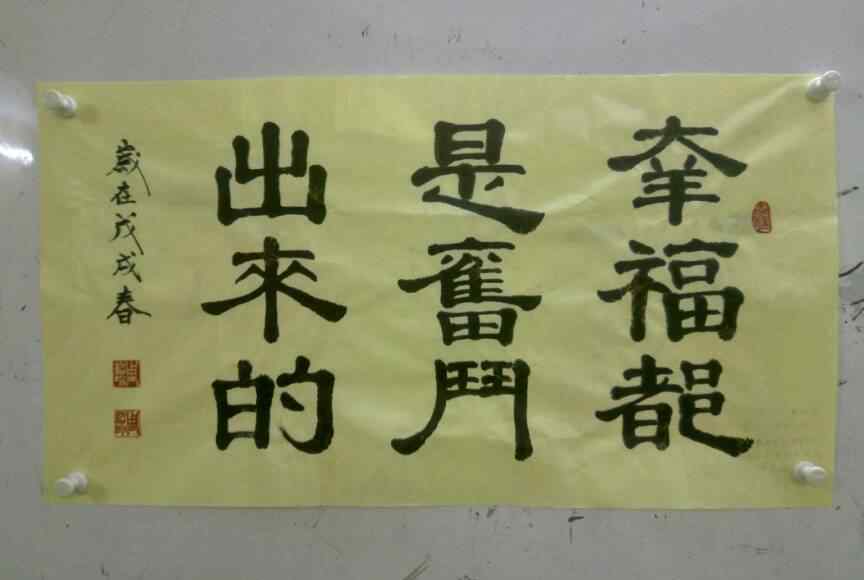 幸福都
是奮鬥
出來的
歲在戊戌春